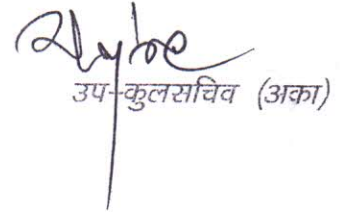 उप-कुलसचिव (अका)